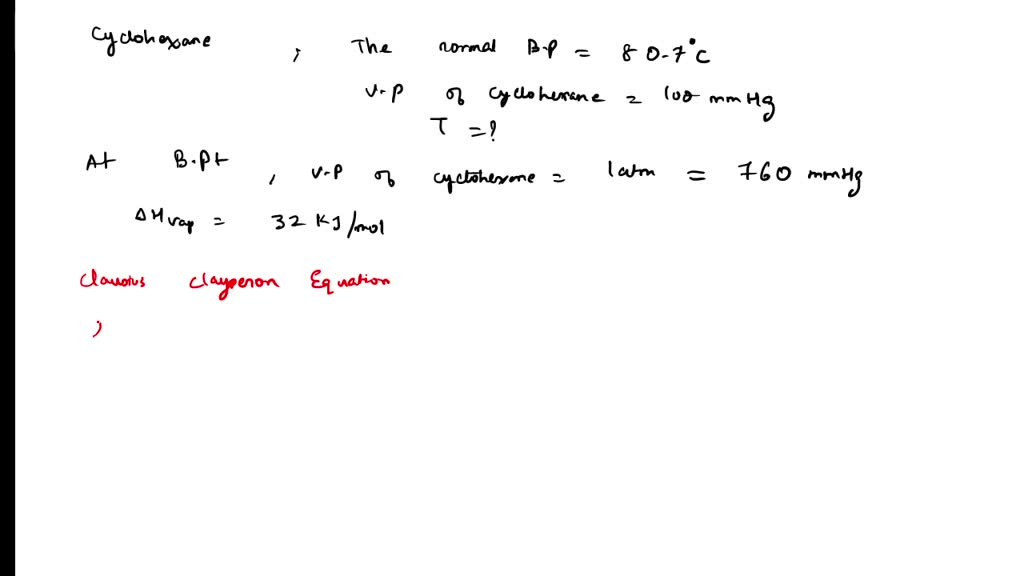 Cyclohexane ; The normal B.P = 80.7°C
V.P of cyclohexane = 100 mmHg
T = ?
At B.Pt , V.P of cyclohexane = 1atm = 760 mmHg
ΔHvap = 32 KJ/mol
Clausius Clayperon Equation
;